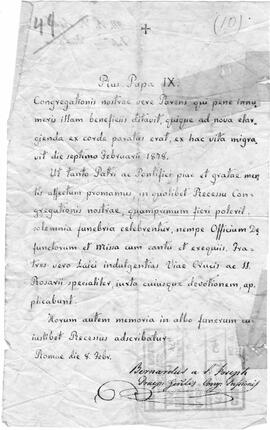 49
(10)
Pius Papa IX.
Congregationis nostrae vere Parens qui pene innu
meris illam beneficiis ditavit, quique ad nova elar
gienda ex corde paratus erat, ex hac vita migra
vit die septima Februarii 1878.
Ut tanto Patri ac Pontifici piae et gratae men
tis affectum promamus, in qualibet Recessu Con
gregationis nostrae, quamprimum fieri poterit,
solemnia funebria celebrentur, nempe Officium De
functorum et Missa cum cantu et exequiis. Fra
tres vero Laici indulgentias Viae Crucis ac SS.
Rosarii specialiter iuxta cuiusque devotionem, ap
plicabunt.
Horum autem memoria in albo funerum cu
iuslibet Recessus adscribatur.
Romae die 8. Febr.
Bernardus a S. Joseph
Praep. Gen̄lis Cong. Passionis